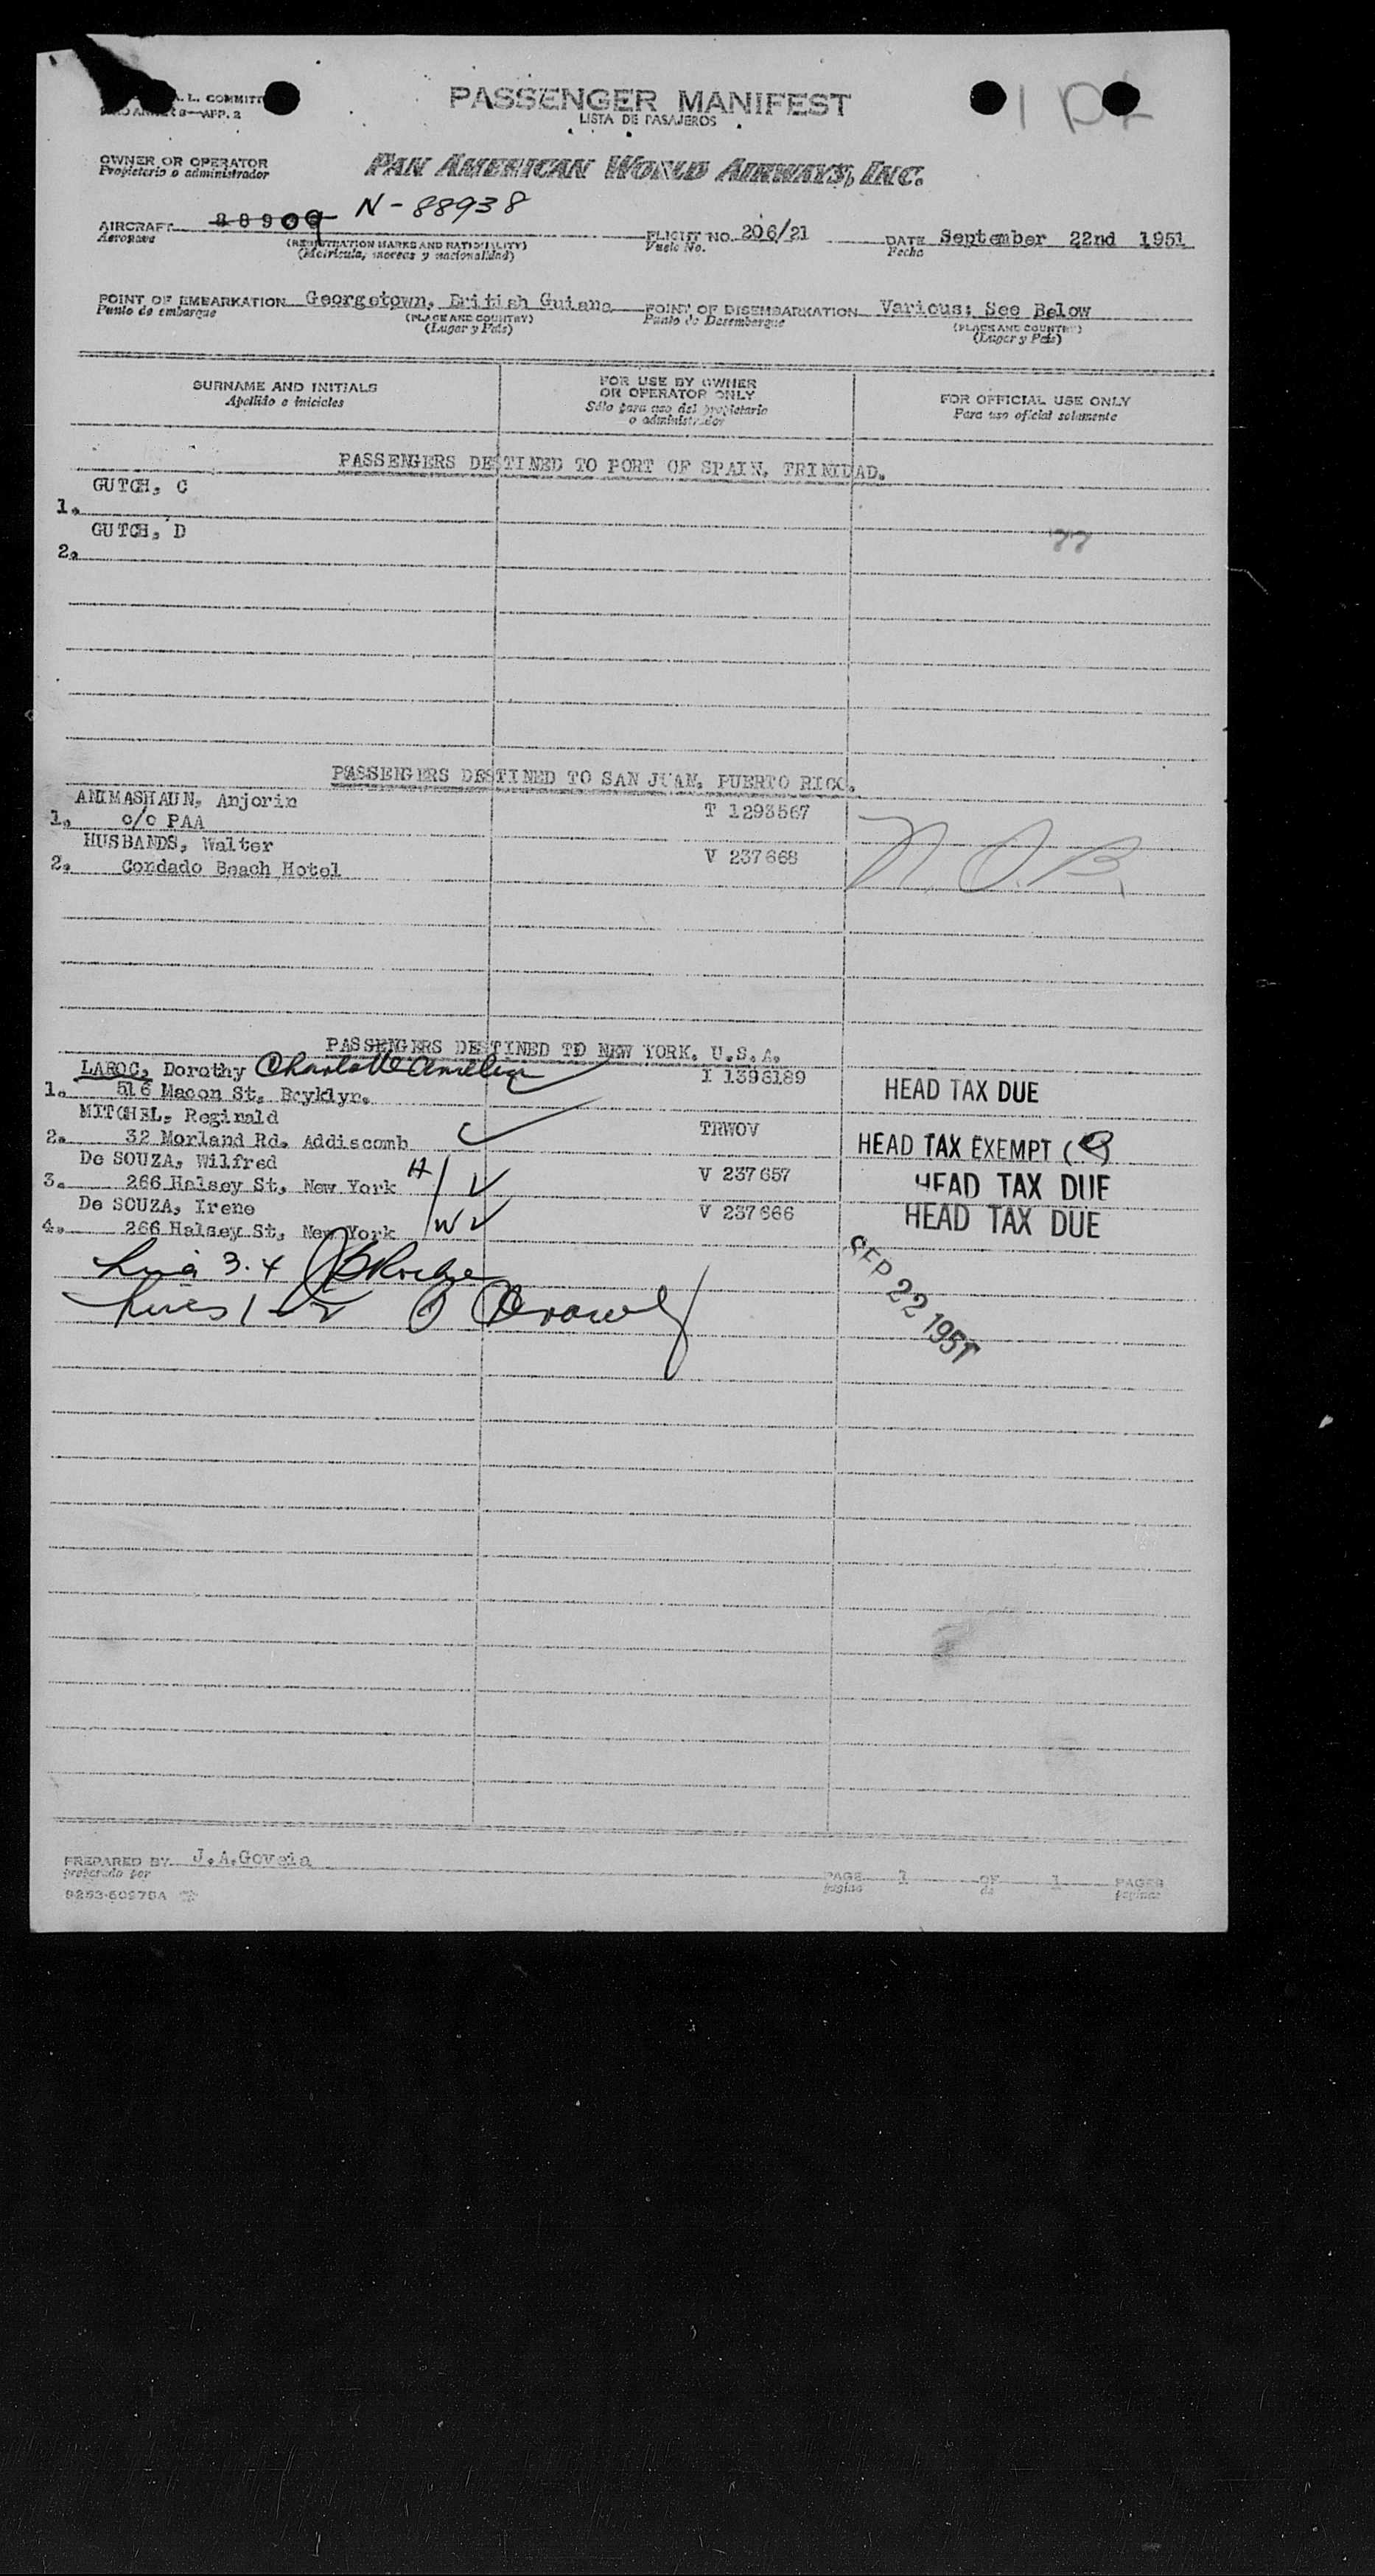 A. L. COMMITT
APP. 2
PASSENGER MANIFEST
LISTA DE PASAJEROS
OWNER OR OPERATOR
Propietario o administrador
PAN AMERICAN WORLD AIRWAYS, INC.
AIRCRAFT 88909 N-88938
Aeronave
(REGISTRATION MARKS AND NATIONALITY)
(Matrícula, marcas y nacionalidad)
FLIGHT NO. 206/21
Vuelo No.
DATE September 22nd 1951
Fecha
POINT OF EMBARKATION Georgetown, British Guiana
Punto de embarque
(PLACE AND COUNTRY)
(Lugar y País)
POINT OF DISEMBARKATION Various: See Below
Punto de Desembarque
(PLACE AND COUNTRY)
(Lugar y País)
SURNAME AND INITIALS
Apellido e iniciales
FOR USE BY OWNER
OR OPERATOR ONLY
Sólo para uso del propietario
o administrador
FOR OFFICIAL USE ONLY
Para uso oficial solamente
PASSENGERS DESTINED TO PORT OF SPAIN, TRINIDAD.
GUTCH, C
1.
GUTCH, D
2.
PASSENGERS DESTINED TO SAN JUAN, PUERTO RICO.
ANIMASHAUN, Anjorin T 1293567
1. c/o PAA
HUSBANDS, Walter V 237668
2. Condado Beach Hotel
PASSENGERS DESTINED TO NEW YORK, U.S.A.
LAROC, Dorothy Charlotte Amelia I 1396189
1. 516 Macon St. Bryklyn. HEAD TAX DUE
MITCHEL, Reginald TRWOV
2. 32 Morland Rd. Addiscomb HEAD TAX EXEMPT
De SOUZA, Wilfred V 237657
3. 266 Halsey St, New York H HEAD TAX DUE
De SOUZA, Irene V 237666 HEAD TAX DUE
4. 266 Halsey St, New York W
3.4
Lines 1-2
SEP 22 1951
PREPARED BY J.A.Goveia
preparado por
PAGE 1 OF 1 PAGES
página de páginas